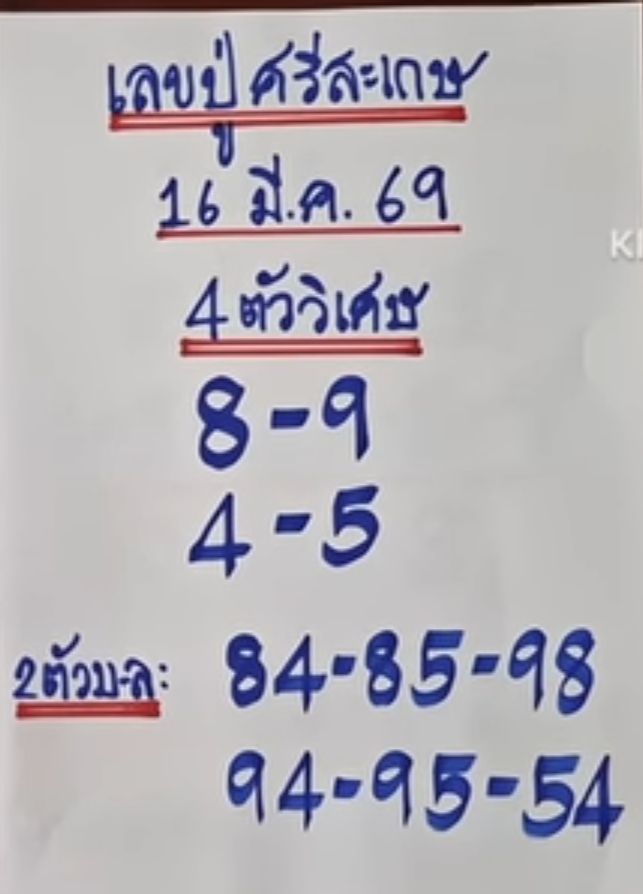 เลขปู่ศรีสะเกษ
16 มี.ค. 69
4 ตัววิเศษ
8-9
4-5
2ตัวบ-ล: 84-85-98
94-95-54